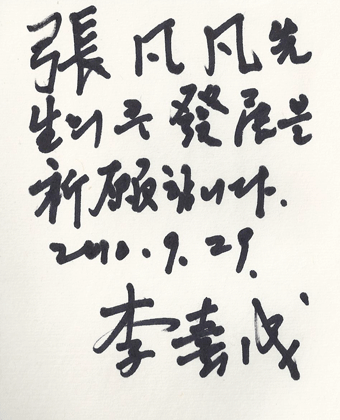 張凡凡先
生의 큰 發展을
祈願합니다.
2010. 9. 29.
李壽成